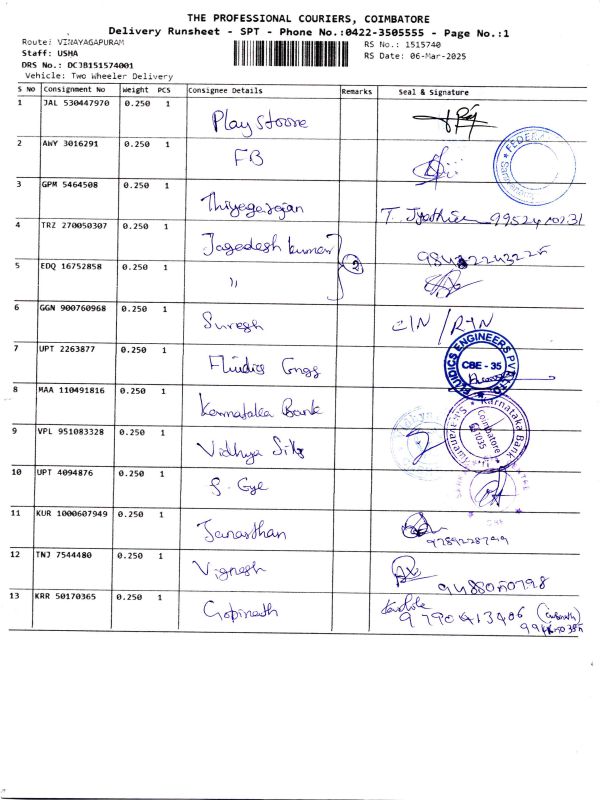 THE PROFESSIONAL COURIERS, COIMBATORE
Delivery Runsheet - SPT - Phone No.:0422-3505555 - Page No.:1
Route: VINAYAGAPURAM
Staff: USHA
DRS No.: DCJB151574001
Vehicle: Two Wheeler Delivery
RS No.: 1515740
RS Date: 06-Mar-2025
S No Consignment No Weight PCS Consignee Details Remarks Seal & Signature
1 JAL 530447970 0.250 1 Play Stoore
2 AWY 3016291 0.250 1 FB
FEDERAL
3 GPM 5464508 0.250 1 Thiyagarajan
4 TRZ 270050307 0.250 1 Jagedesh kumar
5 EDQ 16752858 0.250 1 " 2
6 GGN 900760968 0.250 1 Suresh
7 UPT 2263877 0.250 1 Fluidics Engg
FLUIDICS ENGINEERS PVT LTD
CBE - 35
8 MAA 110491816 0.250 1 Karnataka Bank
Karnataka Bank
Coimbatore
641035
9 VPL 951083328 0.250 1 Vidhya Silks
10 UPT 4094876 0.250 1 S. Eye
11 KUR 1000607949 0.250 1 Janarthan
9789228799
12 TNJ 7544480 0.250 1 Vignesh
13 KRR 50170365 0.250 1 Gopinath
9790413406